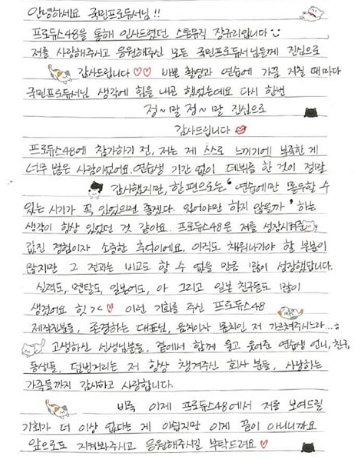 안녕하세요 국민프로듀서님!!
프로듀스48을 통해 인사드렸던 스톤뮤직 장규리입니다
저를 사랑해주시고 응원해주신 모든 국민프로듀서님들께 진심으로
감사드립니다♡♡ 바쁜 촬영과 연습에 가끔 지칠 때마다
국민프로듀서님 생각에 힘을 내곤 했었는데요 다시 한번
정~말 정~말 진심으로
감사드립니다
프로듀스48에 참가하기 전, 저는 제 스스로 느끼기에 부족한 게
너무 많은 사람이었어요. 연습생 기간 없이 데뷔를 한 것이 정말
감사했지만, 한편으로는 '연습에만 몰두할 수
있는 시기가 꼭 있었으면 좋겠다. 있어야만 하지 않을까' 하는
생각이 항상 있었던 것 같아요. 프로듀스48은 저를 성장시켜준
값진 경험이자 소중한 추억이에요. 아직도 채워나가야 할 부분이
많지만 그 전과는 비교도 할 수 없을 만큼 많이 성장했답니다.
실력도, 멘탈도, 일본어도, 아 그리고 일본 친구들도 많이
생겼어요 힛ㄱ< ♥ 이번 기회를 주신 프로듀스48
제작진분들, 존경하는 대표님, 음치이자 몸치인 저 가르쳐주시느라..ㅎ
고생하신 선생님분들, 곁에서 함께 울고 웃어준 연습생 언니, 친구,
동생들, 덤벙거리는 저 항상 챙겨주신 회사 분들, 사랑하는
가족들까지 감사하고 사랑합니다.
비록 이제 프로듀스48에서 저를 보여드릴
기회가 더 이상 없다는 게 아쉽지만 이게 끝이 아니니까요
앞으로도 지켜봐주시고 응원해주시길 부탁드려요♥